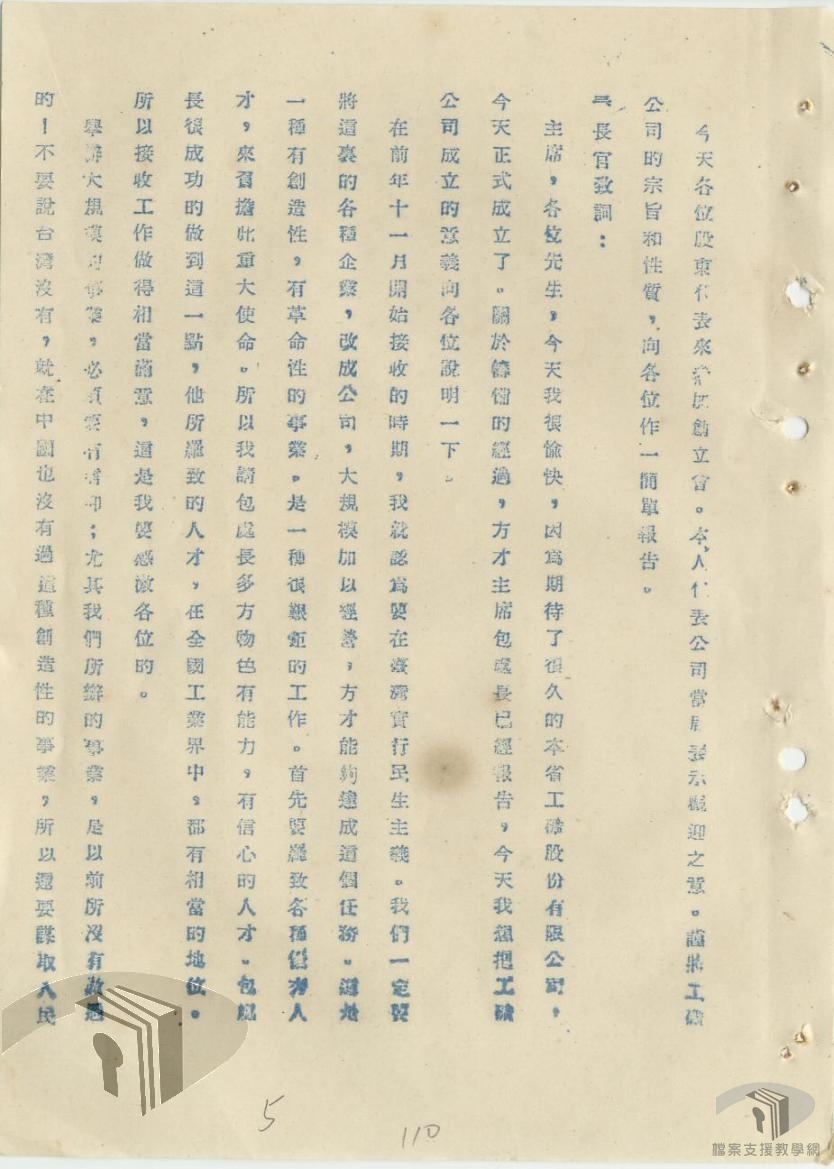 今天各位股東代表來參加創立會。本人代表公司當局表示歡迎之意。謹將工礦
公司的宗旨和性質，向各位作一簡單報告。
長官致詞：
主席，各位先生，今天我很愉快，因爲期待了很久的本省工礦股份有限公司，
今天正式成立了。關於籌備的經過，方才主席包處長已經報告，今天我想把工礦
公司成立的意義向各位說明一下。
在前年十一月開始接收的時期，我就認爲要在臺灣實行民生主義。我們一定要
將這裏的各種企業，改成公司，大規模加以經營，方才能夠達成這個任務。這是
一種有創造性，有革命性的事業。是一種很艱鉅的工作。首先要羅致各種優秀人
才，來負擔此重大使命。所以我請包處長多方物色有能力，有信心的人才。包處
長很成功的做到這一點，他所羅致的人才，在全國工業界中。都有相當的地位。
所以接收工作做得相當滿意，這是我要感激各位的。
舉辦大規模的事業，必須要有信仰；尤其我們所辦的事業，是以前所沒有做過
的！不要說台灣沒有，就在中國也沒有過這種創造性的事業，所以還要謀取人民
5
110
檔案支援教學網